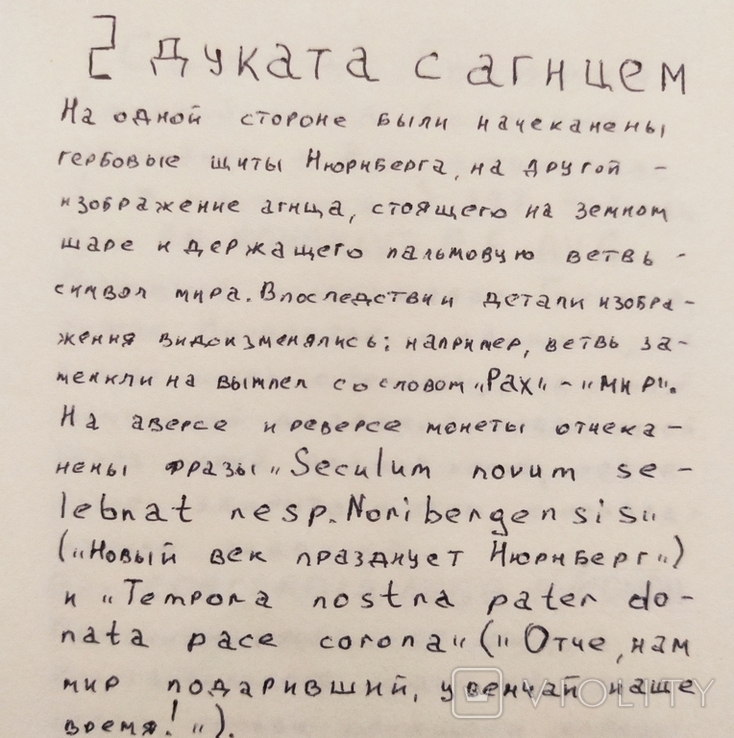 2 дуката с агнцем
На одной стороне были начеканены
гербовые щиты Нюрнберга, на другой –
изображение агнца, стоящего на земном
шаре и держащего пальмовую ветвь –
символ мира. Впоследствии детали изобра-
жения видоизменялись: например, ветвь за-
менили на вымпел со словом „Pax“ – „мир“.
На аверсе и реверсе монеты отчека-
нены фразы „Seculum novum se-
lebrat resp. Noribergensis“
(„Новый век празднует Нюрнберг“)
и „Tempora nostra pater do-
nata pace corona“ („Отче, нам
мир подаривший, увенчай наше
время!“).
VIOLITY